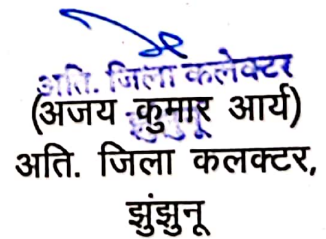 अति. जिला कलेक्टर
झुंझुनू
(अजय कुमार आर्य)
अति. जिला कलक्टर,
झुंझुनू